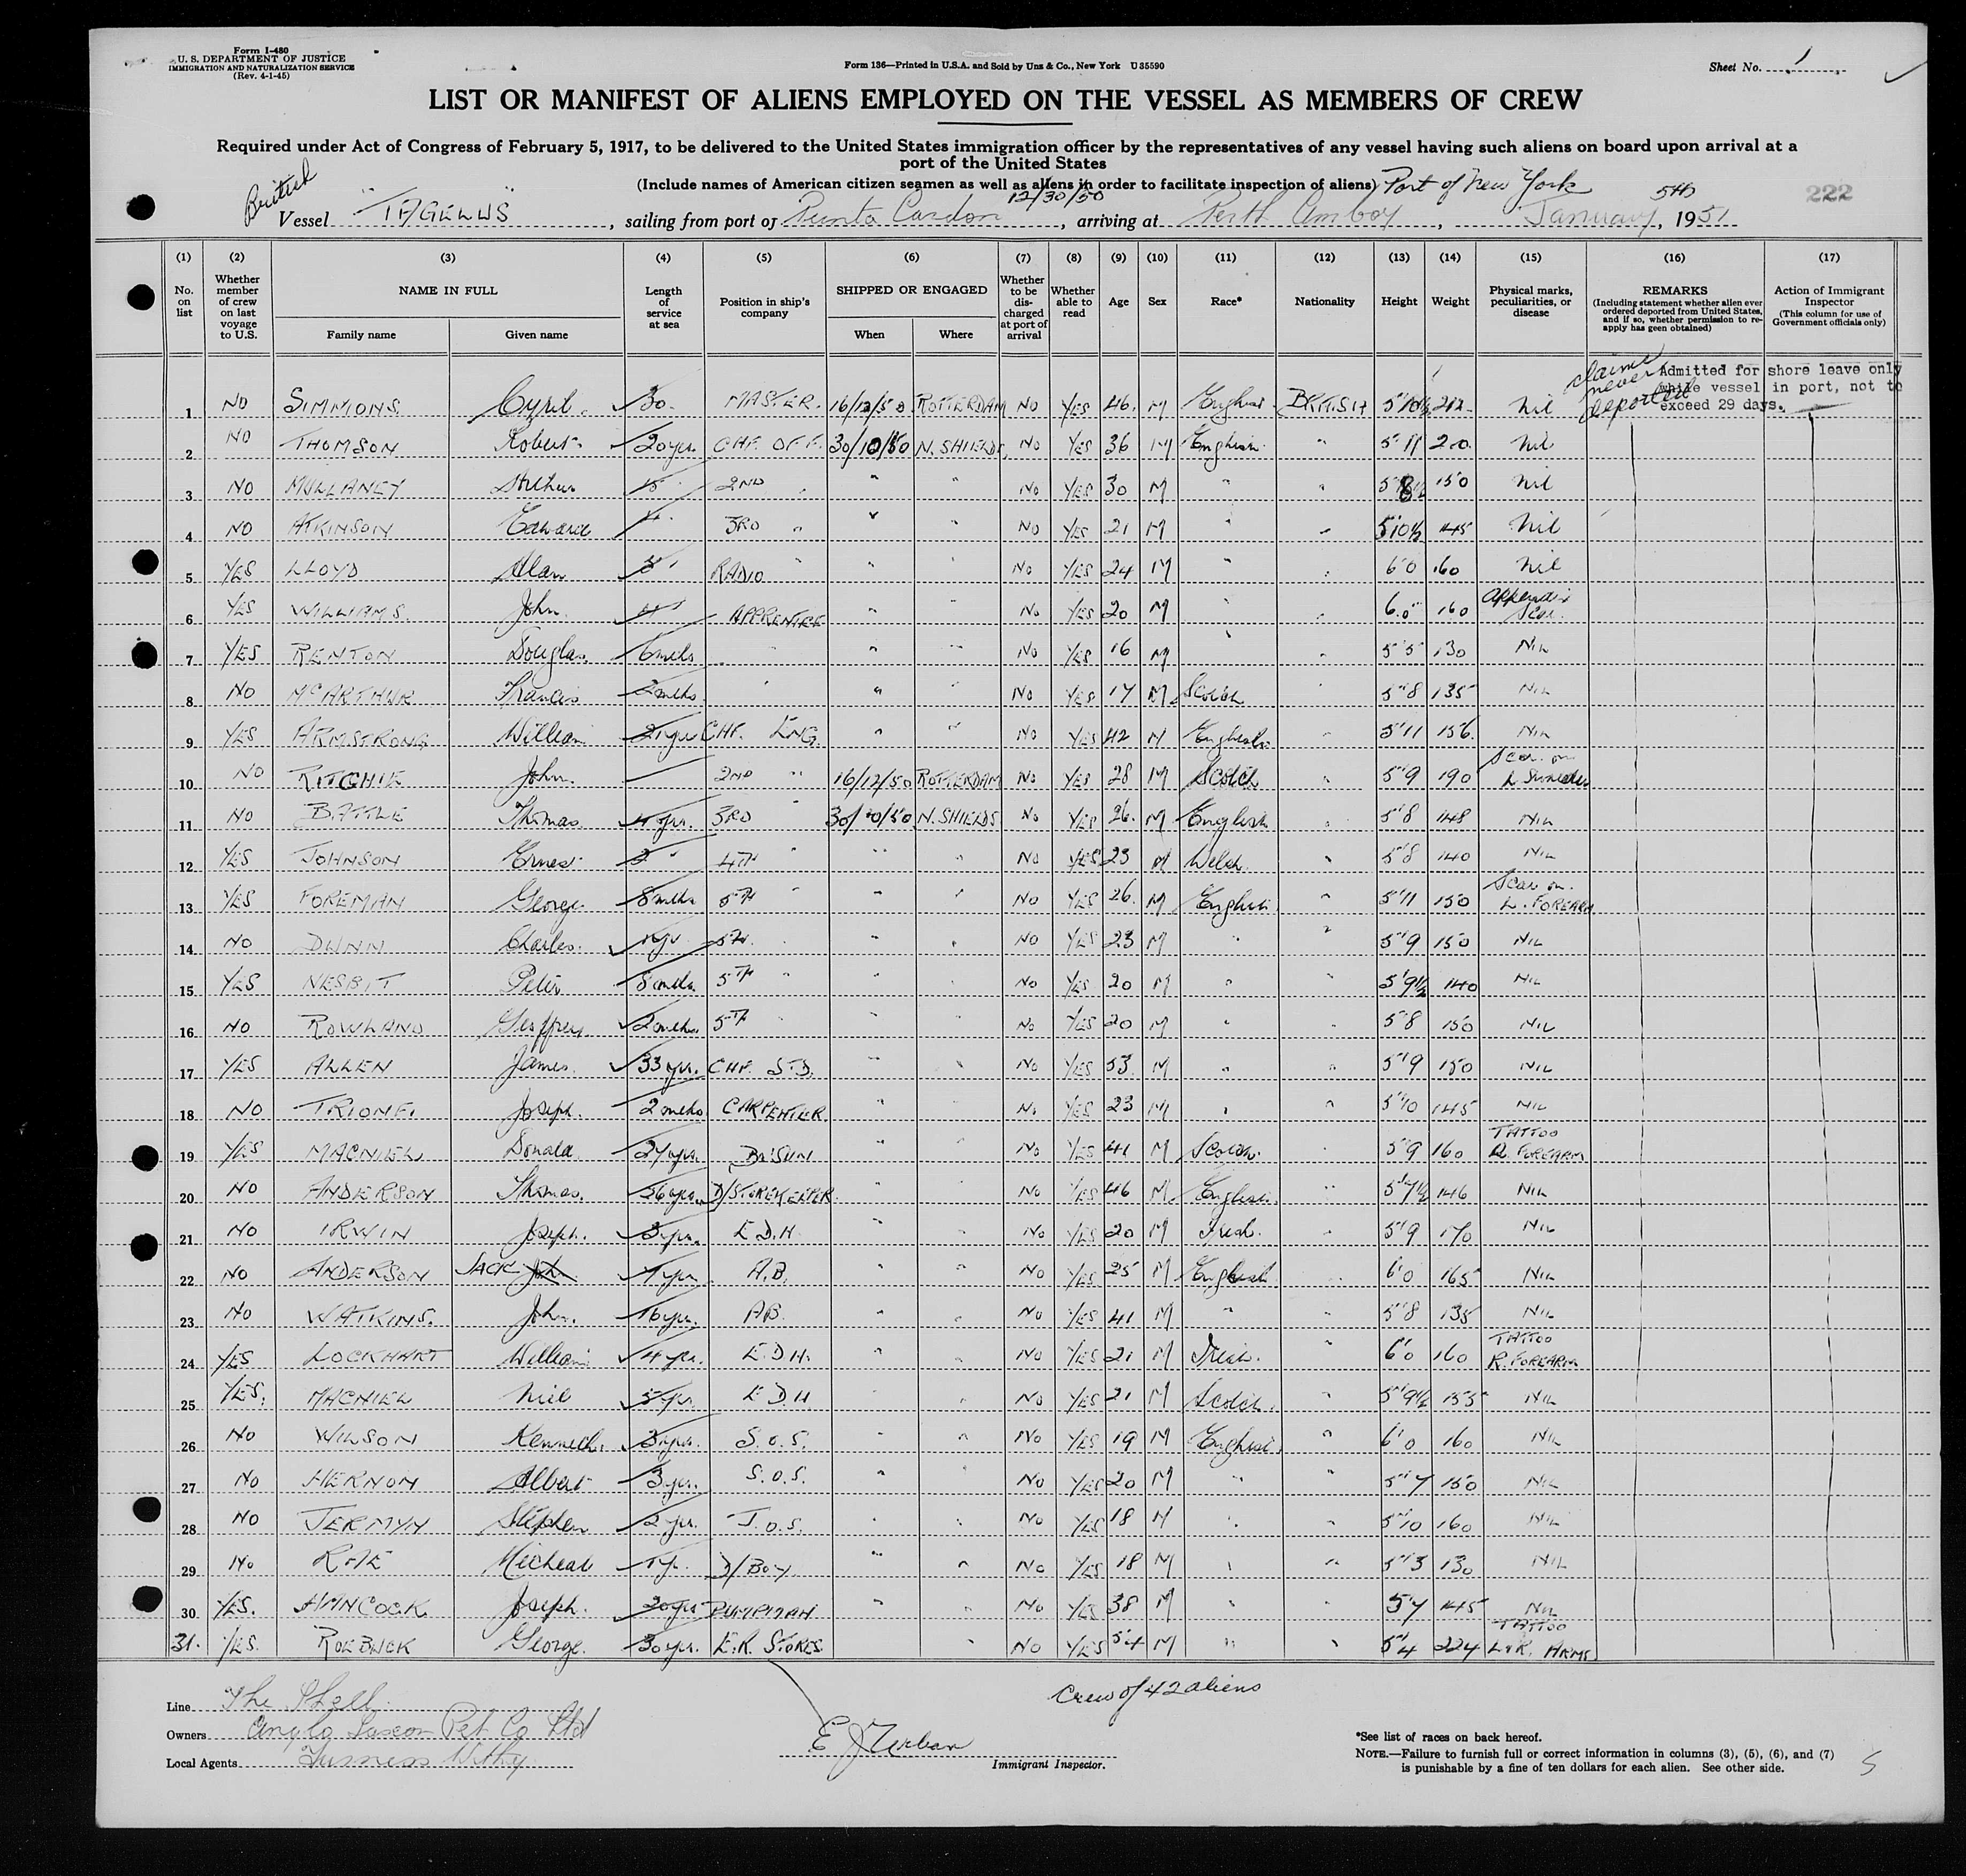 Form I-480
U. S. DEPARTMENT OF JUSTICE
IMMIGRATION AND NATURALIZATION SERVICE
(Rev. 4-1-45)
Form 136—Printed in U.S.A. and Sold by Unz & Co., New York U35590
Sheet No. 1
LIST OR MANIFEST OF ALIENS EMPLOYED ON THE VESSEL AS MEMBERS OF CREW
Required under Act of Congress of February 5, 1917, to be delivered to the United States immigration officer by the representatives of any vessel having such aliens on board upon arrival at a
port of the United States
(Include names of American citizen seamen as well as aliens in order to facilitate inspection of aliens) Port of New York
British 12/30/50 5th 222
Vessel "TAGELUS", sailing from port of Punta Cardon, arriving at Perth Amboy, January, 1951
(1) (2) (3) (4) (5) (6) (7) (8) (9) (10) (11) (12) (13) (14) (15) (16) (17)
No. on list
Whether member of crew on last voyage to U.S.
NAME IN FULL
Family name Given name
Length of service at sea
Position in ship's company
SHIPPED OR ENGAGED
When Where
Whether to be discharged at port of arrival
Whether able to read
Age Sex Race* Nationality Height Weight
Physical marks, peculiarities, or disease
REMARKS
(Including statement whether alien ever ordered deported from United States, and if so, whether permission to re-apply has geen obtained)
Action of Immigrant Inspector
(This column for use of Government officials only)
claims never deported
Admitted for shore leave only
while vessel in port, not to
exceed 29 days.
1 NO SIMMONS. Cyril. 30. MASTER. 16/12/50 ROTTERDAM NO YES 46. M English BRITISH 5'10½ 212. Nil
2 NO THOMSON Robert. 20 yrs. CHF. OFF. 30/10/50 N. SHIELDS, NO YES 36 M English " 5'11 Nil
3 NO MULLANEY 2ND " " " NO YES 30 M " " 5'8½ 150 Nil
4 NO ATKINSON Edward 3RD " " " NO YES 21 M " " 5'10½ 145 Nil
5 YES LLOYD Alan RADIO " " NO YES 24 M " " 6'0 160 Nil
6 YES WILLIAMS. John. APPRENTICE " " NO YES 20 M " " 6'0" 160 Appendix Scar.
7 YES RENTON Douglas. 6 mths " " " NO YES 16 M " " 5'5 130 NIL
8 NO McARTHUR Francis mths. " " " NO YES 17 M Scotch " 5'8 135 NIL
9 YES ARMSTRONG William 21 yrs CHF. ENG. " " NO YES 42 M English " 5'11 156. NIL
10 NO RITCHIE John. 2ND " 16/12/50 ROTTERDAM NO YES 28 M Scotch " 5'9 190 Scar on L Shoulder
11 NO BATTLE Thomas. 4 yrs. 3RD " 30/10/50 N. SHIELDS NO YES 26. M English " 5'8 148 NIL
12 YES JOHNSON Ernest 4TH " " " NO YES 23 M Welsh. " 5'8 140 NIL
13 YES FOREMAN George. 8 mths 5TH " " " NO YES 26. M English " 5'11 150 Scar on. L. FOREARM
14 NO DUNN Charles. 1 yr. 5TH. " " " NO YES 23 M " " 5'9 150 NIL
15 YES NESBIT Peter 8 mths. 5TH " " " NO YES 20 M " " 5'9½ 140 NIL
16 NO ROWLAND Geoffrey. 2 mths. 5TH " " NO YES 20 M " 5'8 150 NIL
17 YES ALLEN James. 33 yrs. CHF. STD. " " NO YES 53. M " " 5'9 150 NIL
18 NO Joseph. 2 mths. CARPENTER. " " NO YES 23 M " " 5'10 145 NIL
19 YES MACNIEL Donald. yrs. BO'SUN " " NO YES 41 M Scotch. " 5'9 160 TATTOO R FOREARM
20 NO ANDERSON Thomas. yrs. D/STOREKEEPER. " " NO YES 46 M English. " 5'7½ 146 NIL
21 NO IRWIN Joseph. yrs. E.D.H. " " NO YES 20 M Irish. " 5'9 170 NIL
22 NO ANDERSON JACK John. yrs. A.B. " " NO YES 25 M English " 6'0 165 NIL
23 NO WATKINS. John. 16 yrs. AB. " " NO YES 41 M " " 5'8 135 NIL
24 YES. LOCKHART William 4 yrs. E.D.H. " " NO YES 21 M Irish. " 6'0 160 TATTOO R. FOREARM
25 YES. MACNIEL Niel 5 yrs. E.D.H " " NO YES 21 M Scotch. " 5'9½ 155 NIL
26 NO WILSON Kenneth. 3 yrs. S.O.S. " " NO YES 19 M English. " 6'0 160 NIL
27 NO HERNON Albert 3 yrs. S.O.S. " " NO YES 20 M " " 5'7 150 NIL
28 NO JERMYN Stephen 2 yrs. J.O.S. " " NO YES 18 M " " 5'10 160 NIL
29 NO RAE Micheal 1 yr. D/BOY " " NO YES 18 M " " 5'3 130 NIL
30 YES. HANCOCK Joseph. 20 yrs PUMPMAN " " NO YES 38 M " " 5'7 145 NIL
31. YES. ROEBUCK George. 30 yrs. E.R. STORES. " NO YES 54 M " " 5'4 224 TATTOO L & R. ARMS
Line The Shell.
Owners Anglo Saxon Pet. Co Ltd
Local Agents Furness Withy.
Crew of 42 aliens
E J Urban
Immigrant Inspector.
*See list of races on back hereof.
NOTE.—Failure to furnish full or correct information in columns (3), (5), (6), and (7)
is punishable by a fine of ten dollars for each alien. See other side.
5